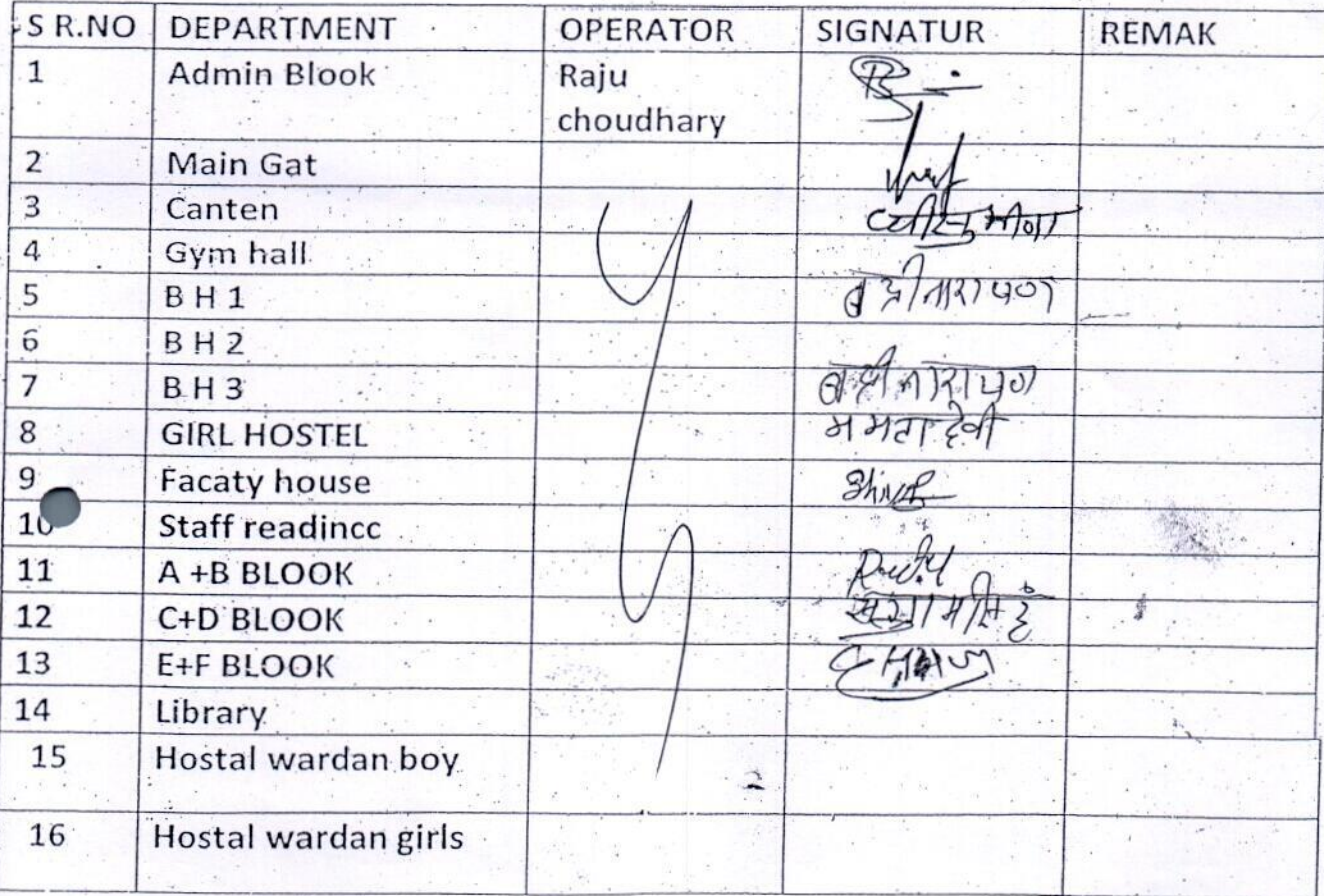 S R.NO DEPARTMENT OPERATOR SIGNATUR REMAK
1 Admin Blook Raju
choudhary
2 Main Gat
3 Canten
4 Gym hall
5 B H 1
6 B H 2
7 B H 3
8 GIRL HOSTEL ममता देवी
9 Facaty house
10 Staff readincc
11 A +B BLOOK
12 C+D BLOOK
13 E+F BLOOK
14 Library
15 Hostal wardan boy
16 Hostal wardan girls